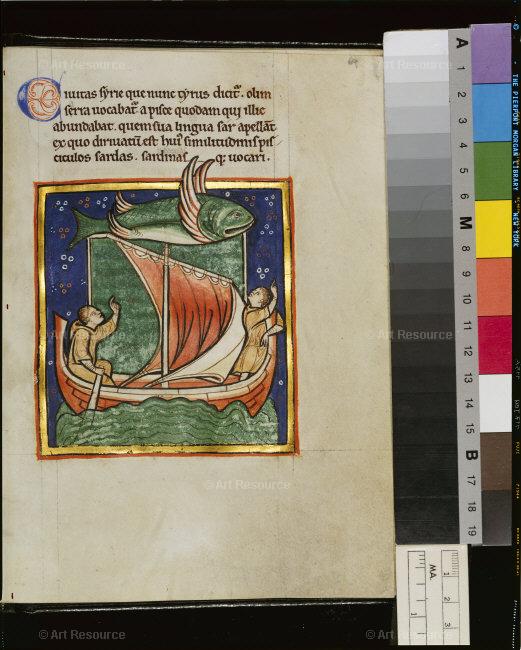 Ciuitas syrie que nunc tyrus dicit̃. olim
serra uocabat̃. a pisce quodam qui illic
abundabat. quem sua lingua sar apellãt
ex quo diriuatũ est huiꝰ similitudinis pis
ciculos sardas. sardinas q; uocari.
© THE PIERPONT MORGAN LIBRARY • NEW YORK
A
1
2
3
4
5
6
M
8
9
10
11
12
13
14
15
B
17
18
19
MA.
1
2
3
1
© Art Resource
© Art Resource
© Art Resource
© Art Resource
© Art Resource
© Art Resource
© Art Resource
© Art Resource